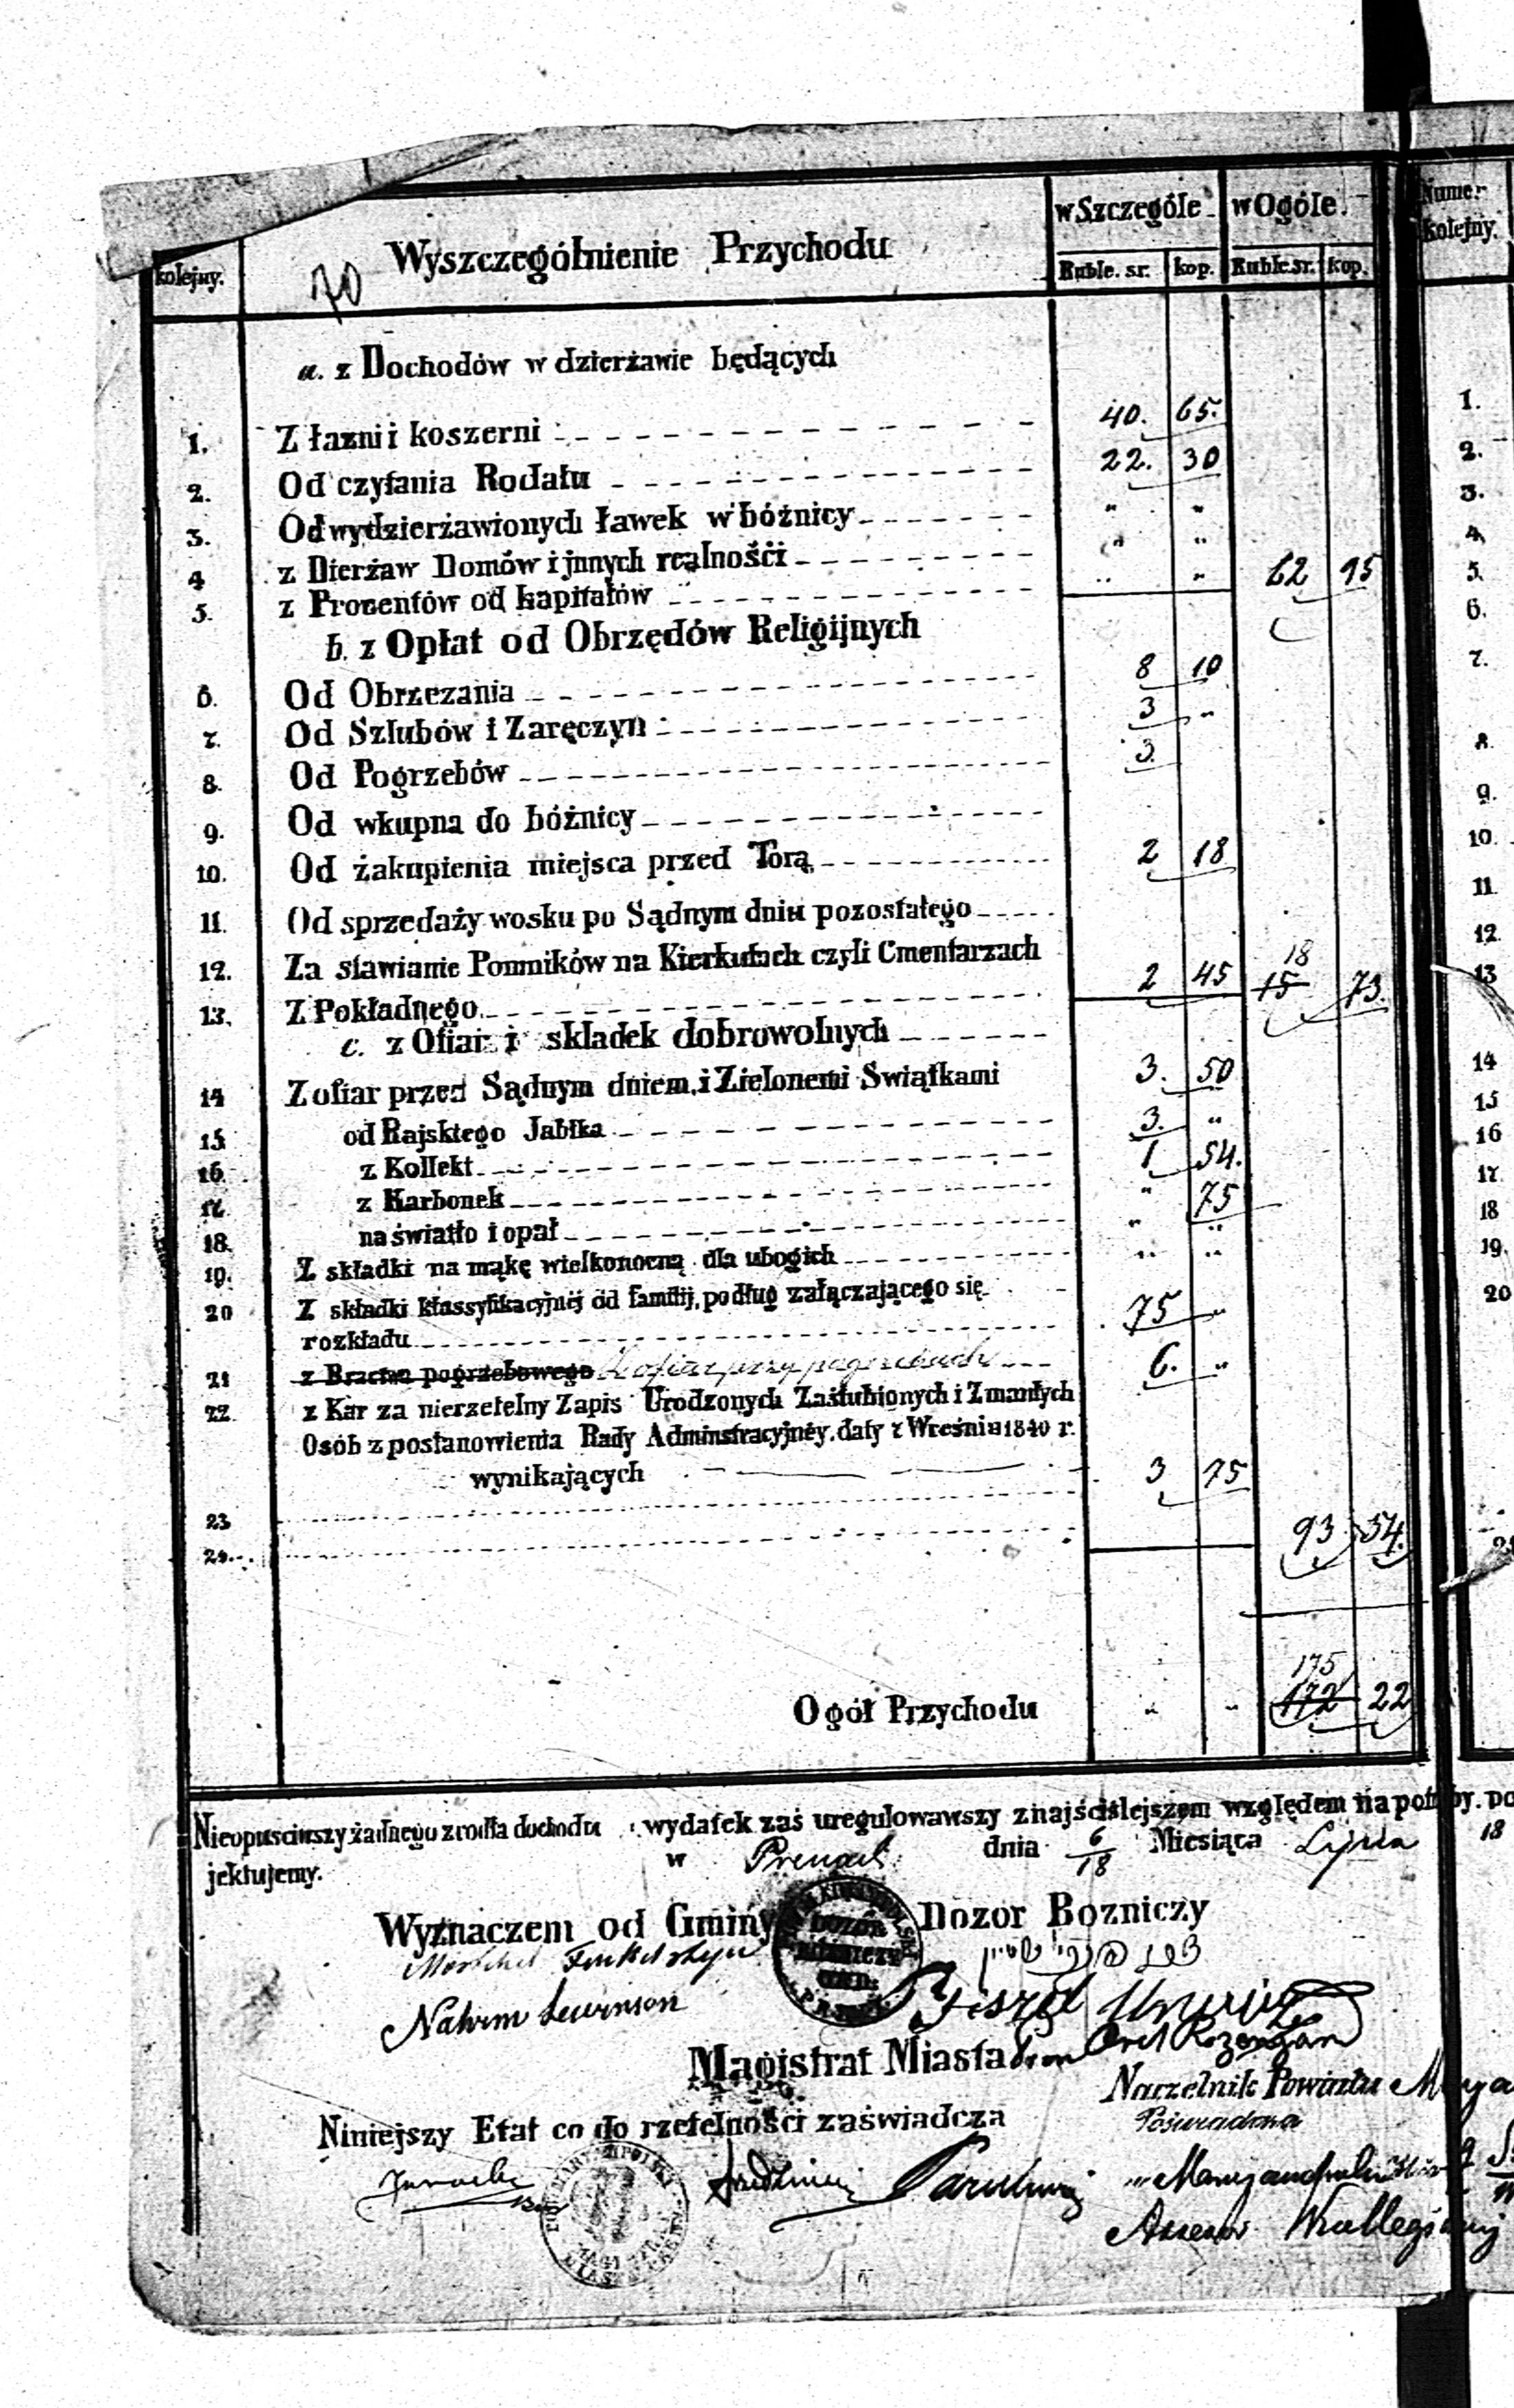 kolejny.
70
Wyszczególnienie Przychodu
w Szczególe
w Ogóle.
Ruble. sr.
kop.
Ruble. sr.
kop.
Numer
kolejny.
a. z Dochodów w dzierżawie będących
1. Z łazni i koszerni 40. 65.
2. Od czytania Rodału 22. 30
3. Od wydzierżawionych ławek w bóżnicy " "
4 z Dierżaw Domów i jnnych realnośći " "
5. z Procentów od kapitałów " " 62 95
b. z Opłat od Obrzędów Religijnych
6. Od Obrzezania 8 10
7. Od Szlubów i Zaręczyn 3 "
8. Od Pogrzebów 3.
9. Od wkupna do bóżnicy
10. Od żakupienia miejsca przed Torą 2 18
11. Od sprzedaży wosku po Sądnym dniu pozostałego
12. Za stawianie Pomników na Kierkutach czyli Cmentarzach
18
13. Z Pokładnego 2 45 15 73.
c. z Ofiar i skladek dobrowolnych
14 Z ofiar przed Sądnym dniem, i Zielonemi Swiątkami 3. 50
15 od Rajskiego Jabłka 3. "
16. z Kollekt 1 54.
17. z Karbonek " 75
18. na światło i opał " "
19. Z składki na mąkę wielkonocną dla ubogich " "
20 Z składki klassyfikacyjnéj od familij, podług załączającego się
rozkładu 75 "
21 z Bractwa pogrzebowego Z ofiar przy pogrzebach 6. "
22. z Kar za nierzetelny Zapis Urodzonych Zaślubionych i Zmarłych
Osób z postanowienia Rady Adminstracyjnéy. daty z Wreśnia 1840 r.
wynikających 3 75
23
24. 93 54.
175
Ogół Przychodu " " 172 22
Nieopusciwszy żadnego zrodła dochodu wydatek zaś uregulowawszy z najściślejszem względem na potrzeby. po
jektujemy. w Prenach dnia 6/18 Miesiąca Lipca 18
Wyznaczem od Gminy Dozor Bozniczy
DOZÓR
Nahum Lewinson
Magistrat Miasta Pren
Naczelnik Powiatu
Niniejszy Etat co do rzetelności zaświadcza
Assessor
1.
2.
3.
4.
5.
6.
7.
8.
9.
10.
11.
12.
13
14
15
16
17.
18
19.
20